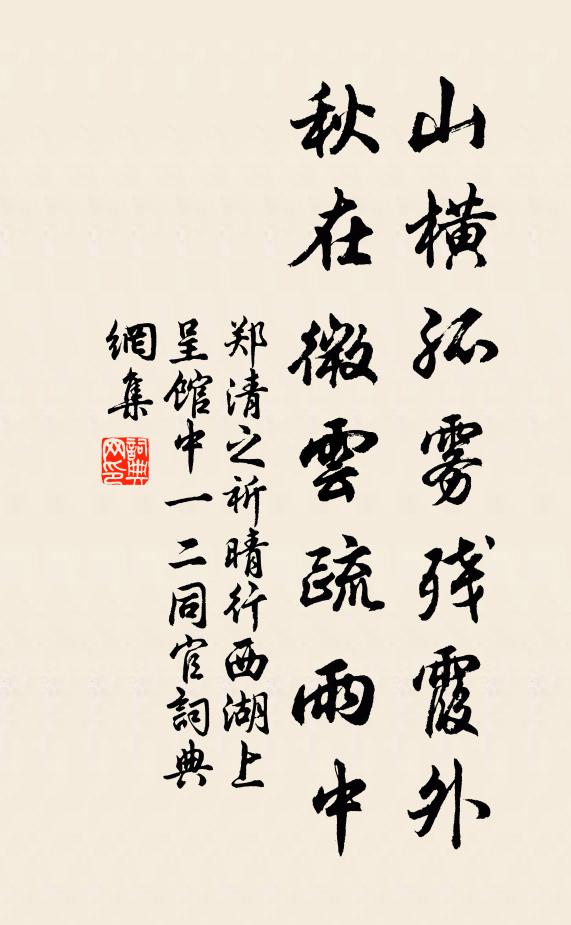 山横孤雾残霞外
秋在微雲疏雨中
郑清之祈晴行西湖上
呈館中一二同官詞典
網集
詞典网印